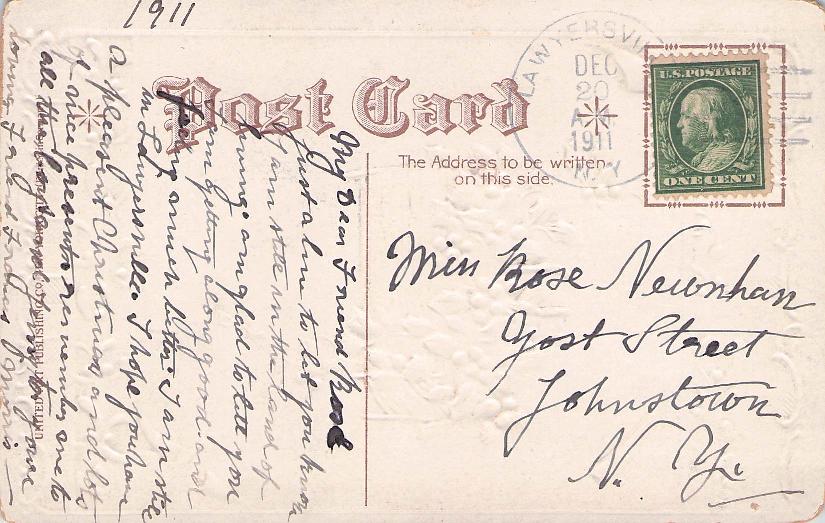 1911
Post Card
The Address to be written
on this side.
LAWYERSVI
DEC
20
1911
N.Y.
U.S. POSTAGE
ONE CENT
Miss Rose Newnham
Yost Street
Johnstown
N. Y.
My Dear Friend Rose
Just a line to let you know
I am still in the land of
living. am glad to tell you
am getting along good. and
feeling much better. I am still
in Lawyersville. I hope you have
a pleasant Christmas and lots
of nice presents remember me to
all the
loving Friend
UNITED ART PUBLISHING CO.